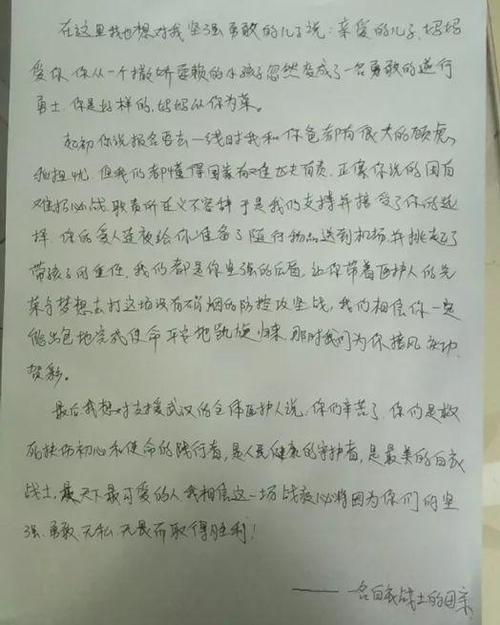 在这里我也想对我坚强勇敢的儿子说：亲爱的儿子，妈妈
爱你，你从一个撒娇耍赖的小孩子忽然变成了一名勇敢的逆行
勇士，你是好样的，妈妈以你为荣。
起初你说报名要去一线时我和你爸都有很大的顾虑
和担忧，但我们都懂得国家有难匹夫有责，正像你说的国有
难招必战，职责所在义不容辞于是我们支持并接受了你的选
择，你的爱人连夜给你准备了随行物品送到机场，并挑起了
带孩子的重任，我们都是你坚强的后盾，让你带着医护人的光
荣与梦想去打这场没有硝烟的防控攻坚战，我们相信你一定
能出色地完成使命平安地凯旋归来，那时我们为你接风 庆功
贺彩。
最后我想对支援武汉的全体医护人说，你们辛苦了，你们是救
死扶伤初心和使命的践行者，是人民健康的守护者，是最美的白衣
战士，是天下最可爱的人我相信这一场战疫必将因为你们的坚
强、勇敢、无私、无畏而取得胜利！
——一名白衣战士的母亲